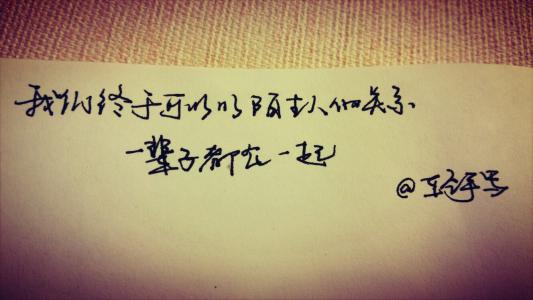 我们终于可以以陌生人的关系
一辈子都在一起